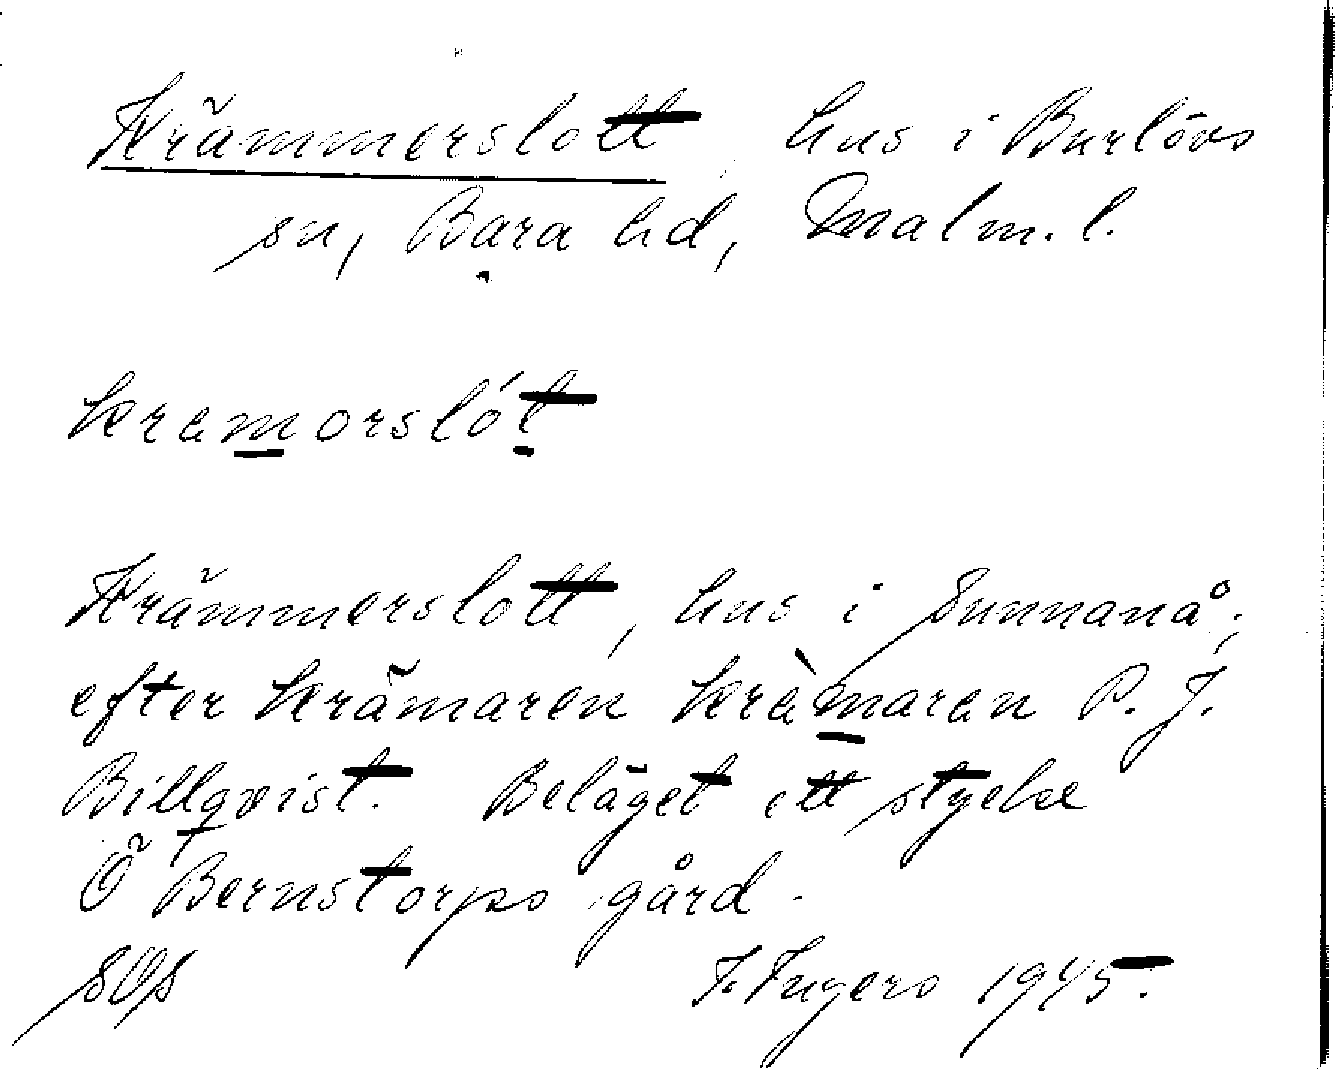 Krämmerslott, hus i Burlövs
sn, Bara hd, Malm. l.
kramorslót
Krämmerslott, hus i Sunnanå;
efter krämaren kràmaren P. J.
Billqvist. Beläget ett stycke
Ö Bernstorps gård.
SOS F. Tugers 1945.